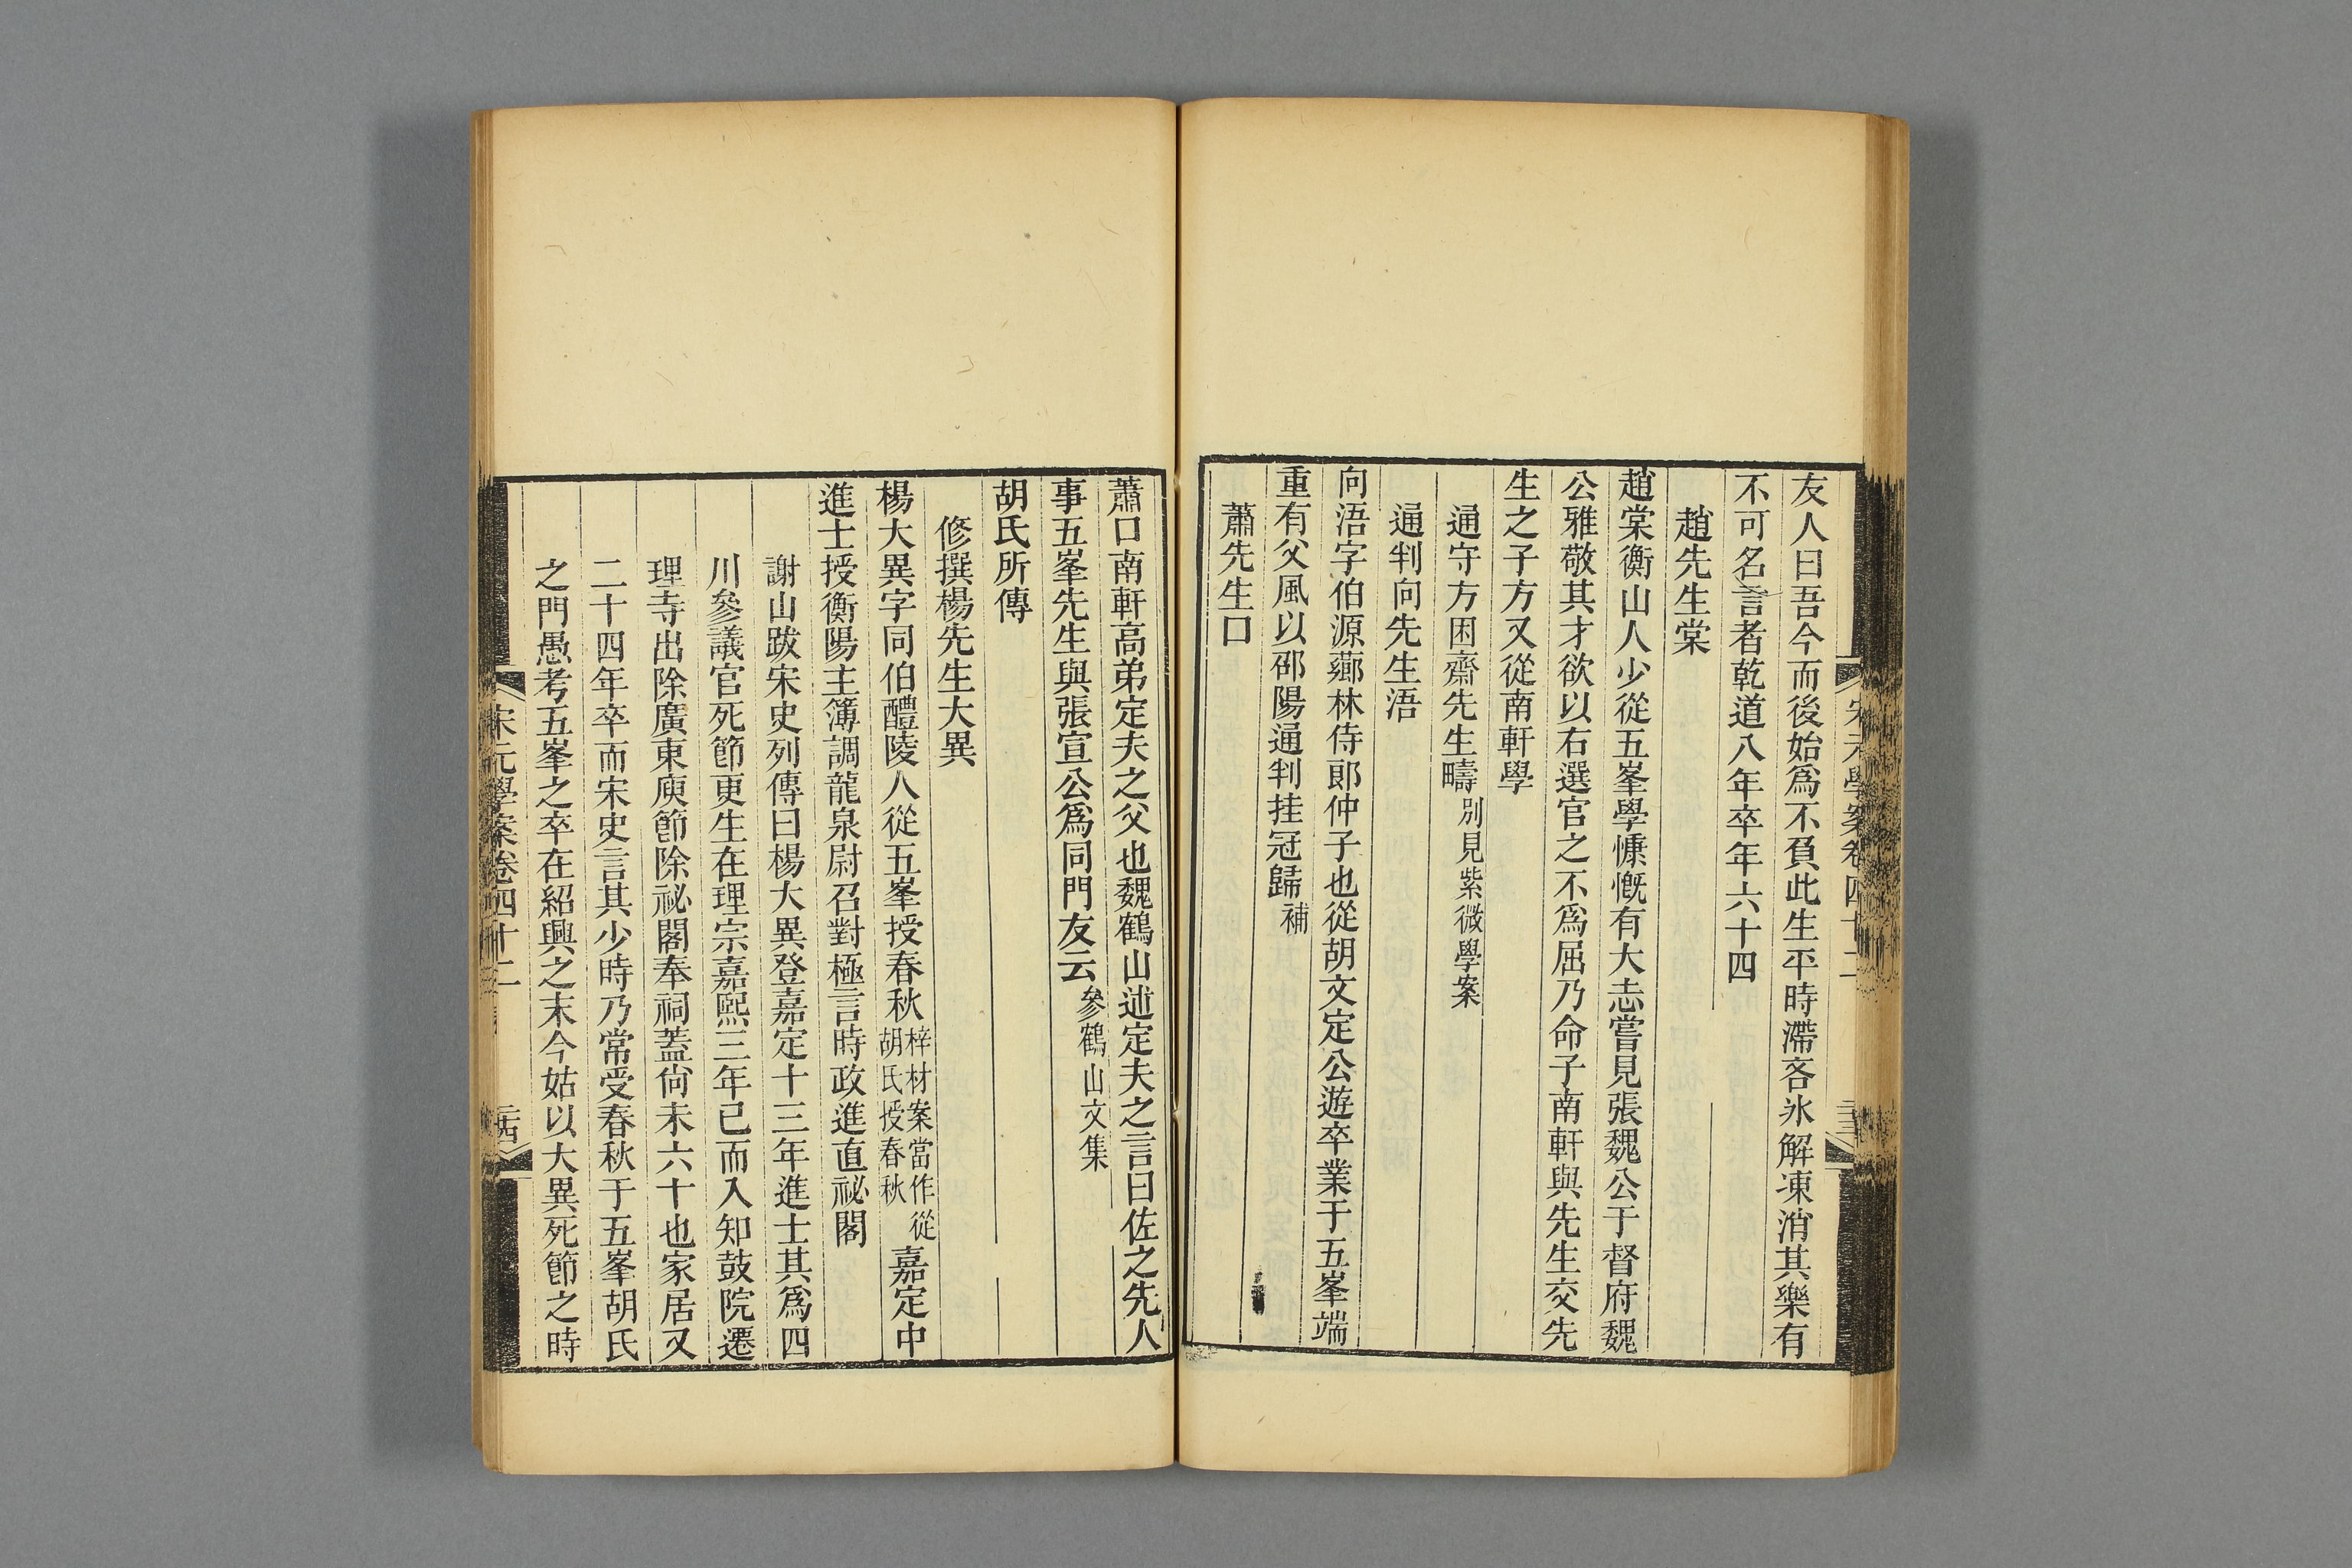 友人曰吾今而後始爲不負此生平時滯吝氷解凍消其樂有
不可名言者乾道八年卒年六十四
趙先生棠
趙棠衡山人少從五峯學慷慨有大志嘗見張魏公于督府魏
公雅敬其才欲以右選官之不爲屈乃命子南軒與先生交先
生之子方又從南軒學
通守方困齋先生疇別見紫微學案
通判向先生浯
向浯字伯源薌林侍郎仲子也從胡文定公遊卒業于五峯端
重有父風以邵陽通判挂冠歸補
蕭先生口
宋元學案卷四十二
蕭口南軒高弟定夫之父也魏鶴山述定夫之言曰佐之先人
事五峯先生與張宣公爲同門友云參鶴山文集
胡氏所傳
修撰楊先生大異
楊大異字同伯醴陵人從五峯授春秋梓材案當作從胡氏授春秋嘉定中
進士授衡陽主簿調龍泉尉召對極言時政進直祕閣
謝山跋宋史列傳曰楊大異登嘉定十三年進士其爲四
川參議官死節更生在理宗嘉熙三年已而入知鼓院遷
理寺出除廣東庾節除祕閣奉祠蓋尙未六十也家居又
二十四年卒而宋史言其少時乃常受春秋于五峯胡氏
之門愚考五峯之卒在紹興之末今姑以大異死節之時
宋元學案卷四十二